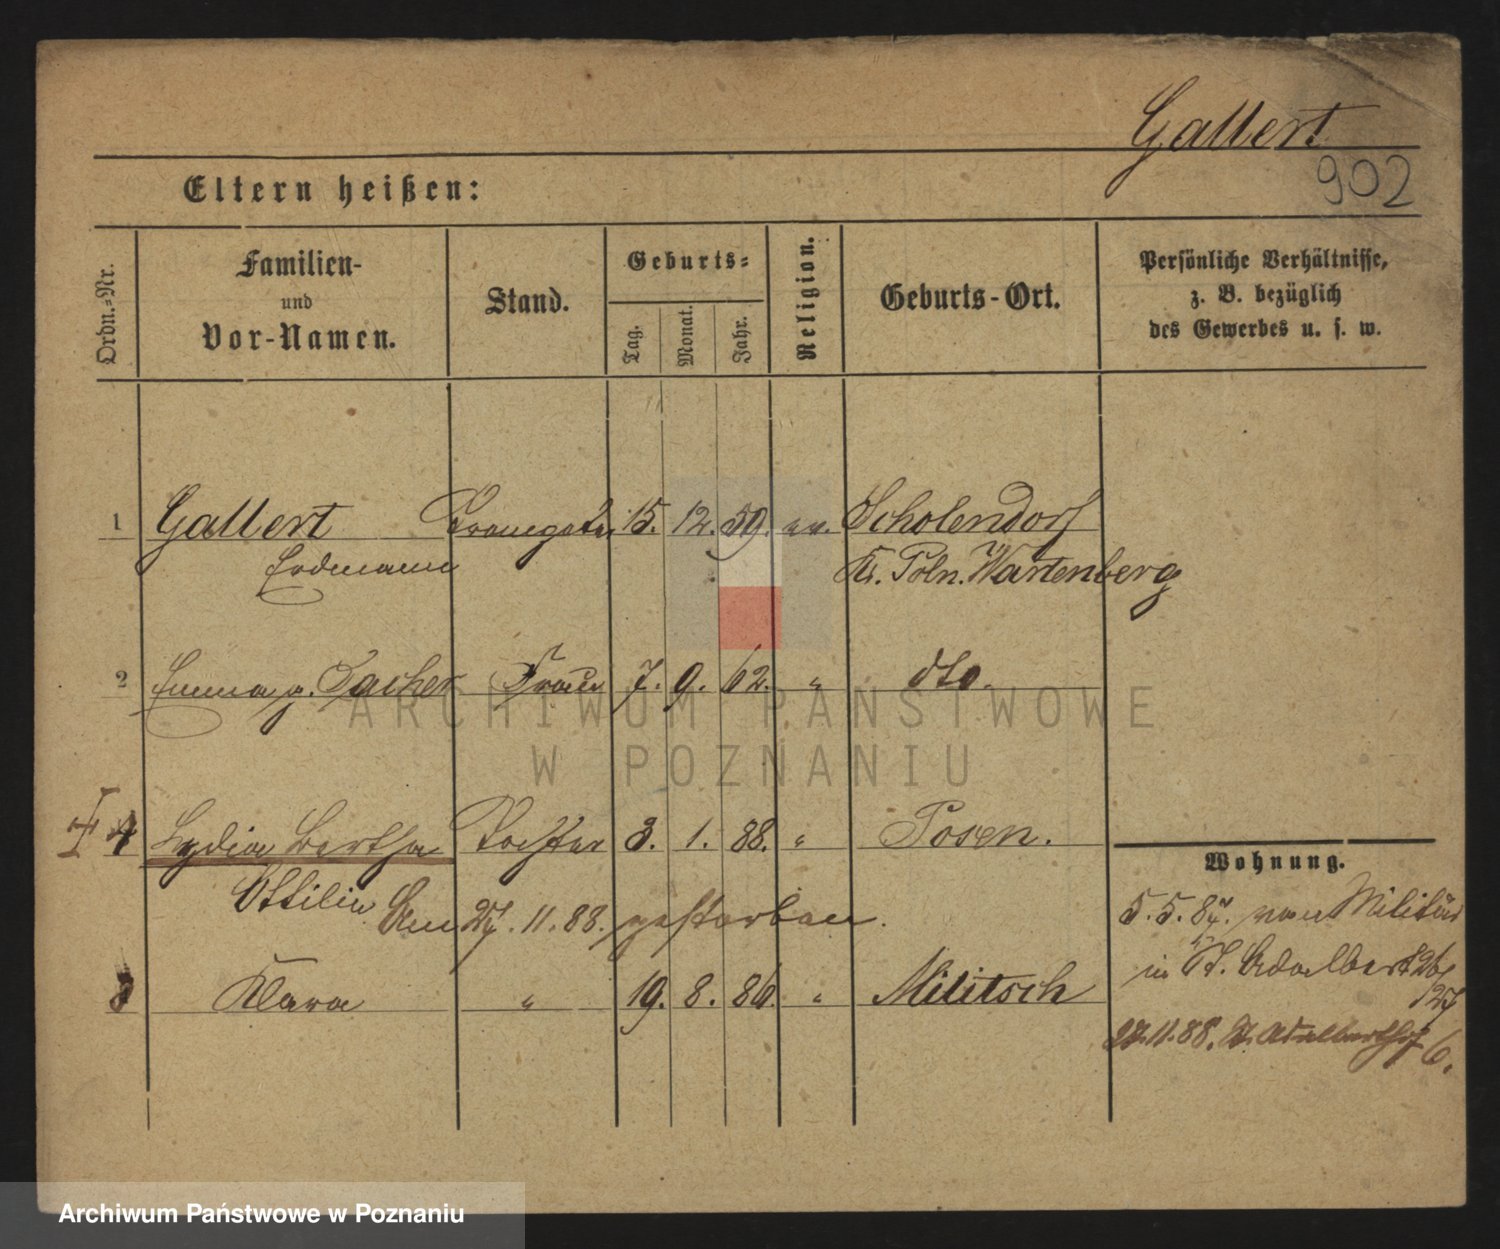 Gallert
902
Eltern heißen:
Ordn.=Nr.
Familien-
und
Vor-Namen.
Stand.
Geburts=
Tag.
Monat.
Jahr.
Religion.
Geburts-Ort.
Persönliche Verhältnisse,
z. B. bezüglich
des Gewerbes u. s. w.
1 Gallert 15. 12. 59. ev. Scholendorf
Erdmann Kr. Poln. Wartenberg
2 Emma g. Sacher Frau 7. 9. 62. " dto.
4 Lydia Bertha Tochter 3. 1. 88. " Posen.
Ottilie Am 27. 11. 88. gestorben.
3 Klara " 19. 8. 86. " Militsch
Wohnung.
5. 5. 87. von Militär
in St. Adalbert 26/
127
27.11.88. St. Adalberthof 6.
ARCHIWUM PAŃSTWOWE
W POZNANIU
Archiwum Państwowe w Poznaniu